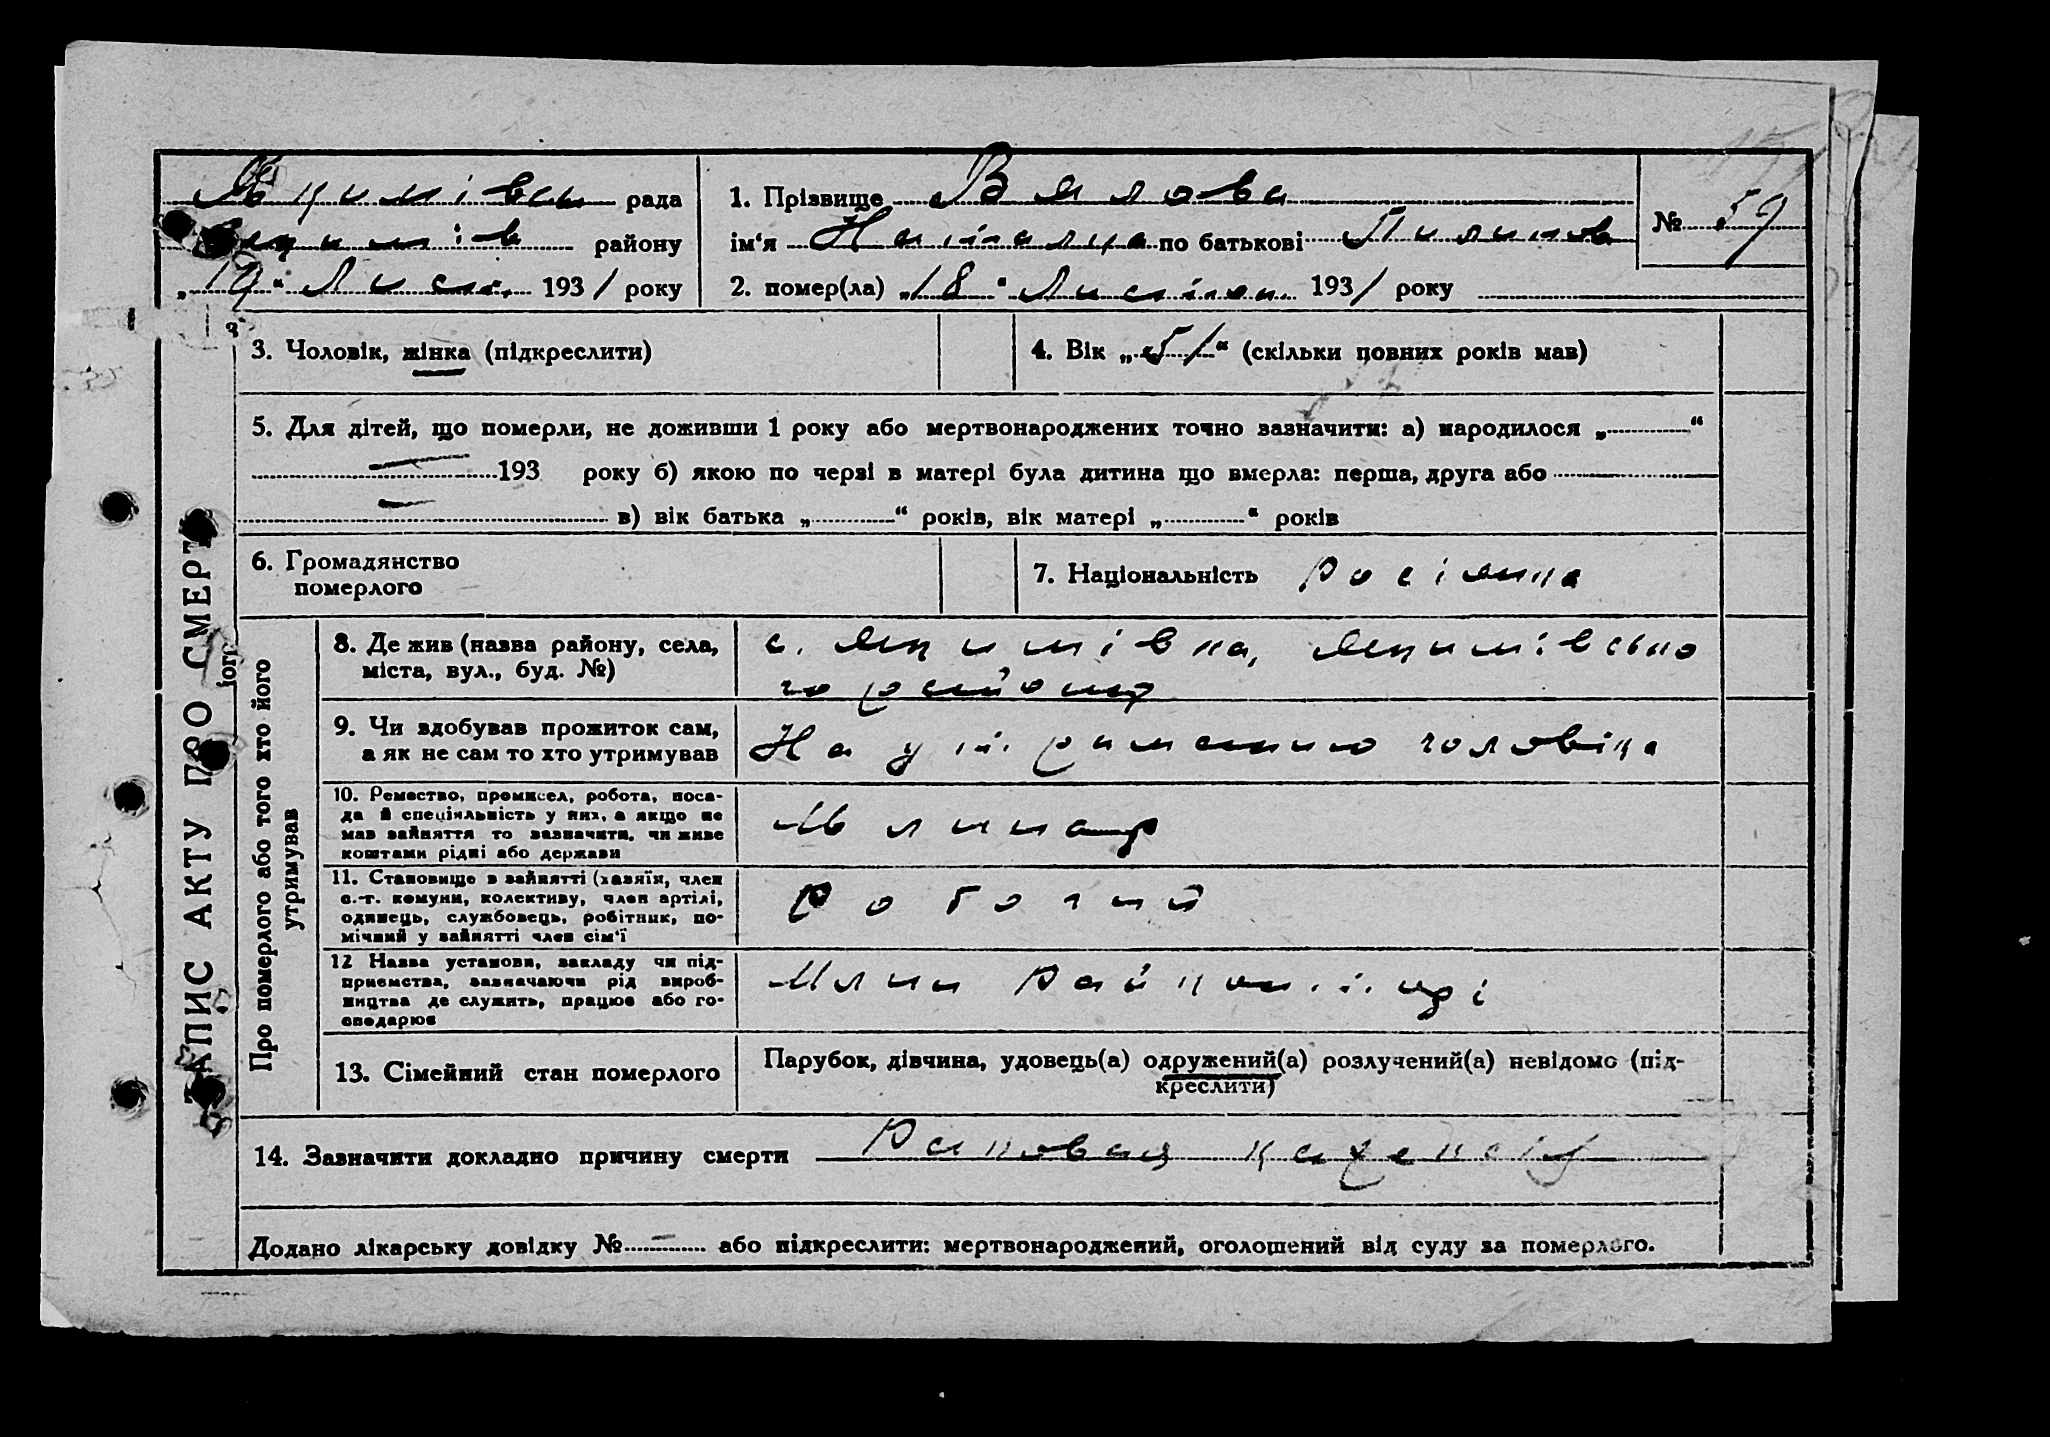 Якимівськ рада
Якимів району
„19“ Лист. 1931 року
1. Прізвище Вялова
ім‘я Наталка по батькові Пилипов
2. помер(ла) „18“ Листопа. 1931 року
№ 59
3. Чоловік, жінка (підкреслити)
4. Вік „51“ (скільки повних років мав)
5. Для дітей, що померли, не доживши 1 року або мертвонароджених точно зазначити: а) народилося „ “
193 року б) якою по черзі в матері була дитина що вмерла: перша, друга або
в) вік батька „ “ років, вік матері „ “ років
6. Громадянство
померлого
7. Національність росіянка
ЗАПИС АКТУ ПРО СМЕРТЬ
Про померлого або того хто його
утримував
8. Де жив (назва району, села,
міста, вул., буд. №)
с. Якимівка, Якимівсько
го району
9. Чи здобував прожиток сам,
а як не сам то хто утримував
На утриманню чоловіка
10. Ремество, промисел, робота, поса-
да й спеціяльність у них, а якщо не
мав зайняття то зазначити, чи живе
коштами рідні або держави
Млинар
11. Становище в зайнятті (хазяїн, член
с.-г. комуни, колективу, член артілі,
одинець, службовець, робітник, по-
мічний у зайнятті член сім‘ї
Робочий
12 Назва установи, закладу чи під-
приємства, зазначаючи рід вироб-
ництва де служить, працює або го-
сподарює
Млин Райкон
13. Сімейний стан померлого
Парубок, дівчина, удовець(а) одружений(а) розлучений(а) невідомо (під-
креслити)
14. Зазначити докладно причину смерти Раковая кахексия
Додано лікарську довідку № — або підкреслити: мертвонароджений, оголошений від суду за померлого.